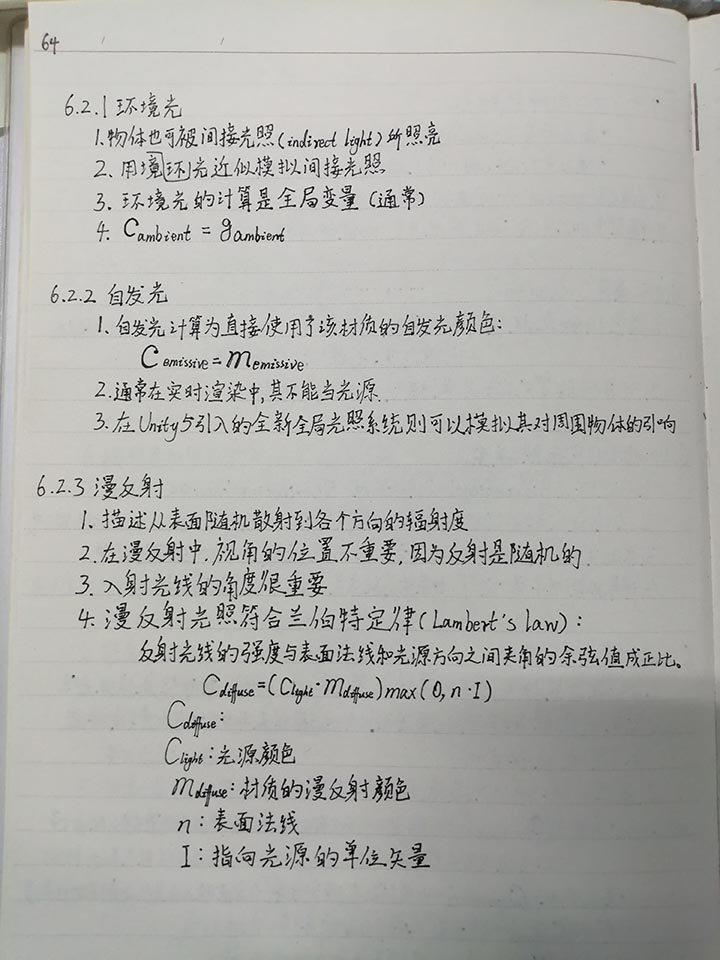 64
6.2.1 环境光
1.物体也可被间接光照(indirect light)所照亮
2. 用境环光近似模拟间接光照
3. 环境光的计算是全局变量(通常)
4. Cambient = gambient
6.2.2 自发光
1. 自发光计算为直接使用了该材质的自发光颜色:
Cemissive = memissive
2.通常在实时渲染中,其不能当光源.
3.在Unity5引入的全新全局光照系统则可以模拟其对周围物体的引响
6.2.3 漫反射
1. 描述从表面随机散射到各个方向的辐射度
2.在漫反射中,视角的位置不重要,因为反射是随机的.
3. 入射光线的角度很重要
4. 漫反射光照符合兰伯特定律(Lambert's law):
反射光线的强度与表面法线和光源方向之间夹角的余弦值成正比。
Cdiffuse=(Clight·mdiffuse)max(0, n·I)
Cdiffuse:
Clight:光源颜色
mdiffuse:材质的漫反射颜色
n:表面法线
I:指向光源的单位矢量